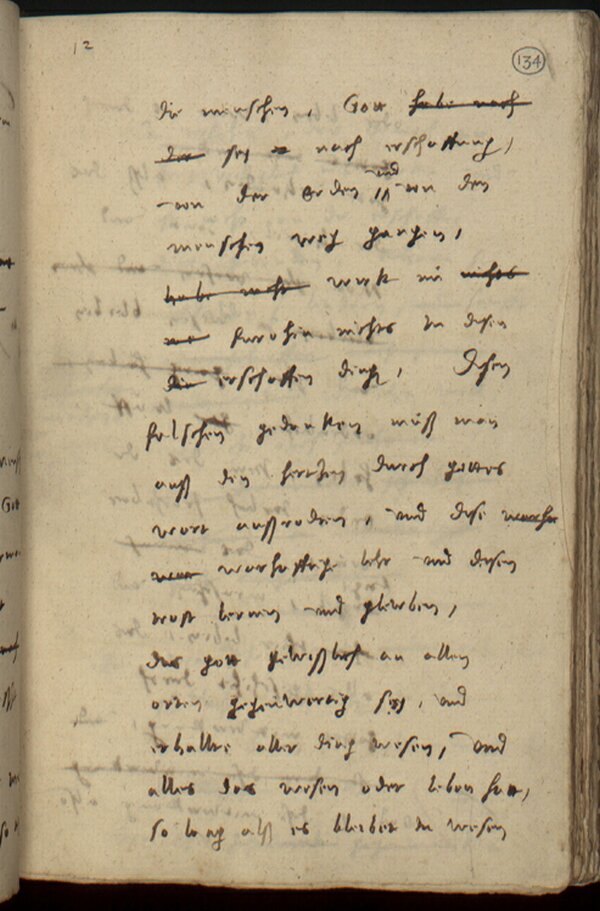 12
134
die menschen, Gott habe nach
der sey nach erschaffung,
von der Erden und von den
menschen weg gangen,
habe nicht werk nichts
forohin nichts in disen
die erschaffen ding, Disen
falschen gedanken muß man
auß den hertzen durch gottes
wort außroden, und dise
warhafftige lehr und disen
trost lernen und glewben,
das gott gewißlich an allen
orten gegenwertig sey, und
erhallte aller ding wesen, und
alles das wesen oder leben hatt,
so lang alß es bleibet im wesen